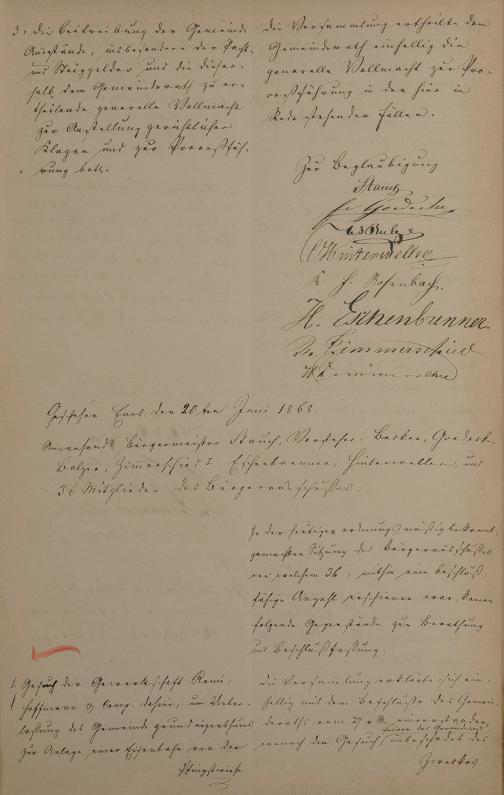 3. die Beitreibung der Gemeinde
Ausstände, insbesondere der Pacht-
und Steiggelder, und die dieser-
halb dem Gemeinderath zu er-
theilende generelle Vollmacht
zur Anstellung gerichtlicher
Klagen und zur Proceßfüh-
rung betr.
Die Versammlung ertheilte dem
Gemeinderath einhellig die
generelle Vollmacht zur Pro-
ceßführung in den hier in
Rede stehenden Fällen.
Zur Beglaubigung
Stauch
Goedecke
Balzer
Hinterweller
H. Rosenbach.
H. Eschenbrenner.
Zimmerschied
Geschehen Ems den 20ten Juni 1868.
Anwesend Bürgermeister Stauch, Vorsteher: Becker, Goedecke,
Balzer, Zimmerschied I, Eschenbrenner, Hinterweller, und
36 Mitglieder des Bürgerausschußes.
In der heutigen ordnungsmäßig bekannt
gemachten Sitzung des Bürgerausschußes
bei welchem 36, mithin eine beschluß-
fähige Anzahl erschienen war, kamen
folgende Gegenstände zur Berathung
und Beschlußfassung:
1. Gesuch der Gewerkschaft Remy,
Hoffmann & Comp. dahier, um Ueber-
laßung des Gemeindegrundeigenthums
zur Anlage einer Eisenbahn von der
Pfingstwiese
Die Versammlung erklärte sich ein-
hellig mit dem Beschluße des Gemein-
deraths vom 27 v. M. einverstanden,
wonach dem Gesuch unbeschadet des
Zweckes